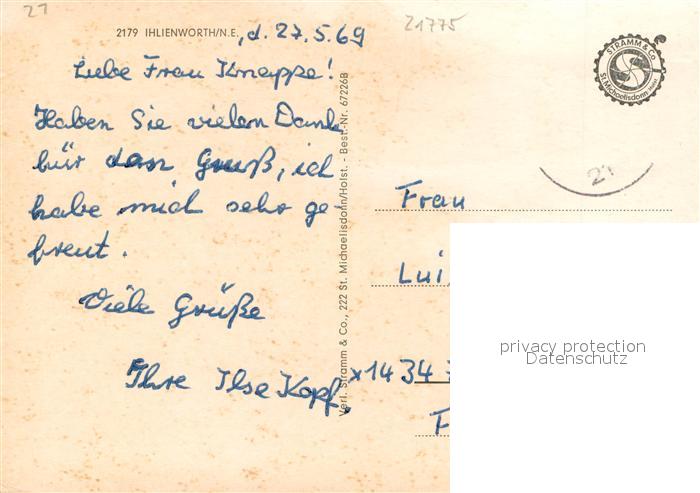 27
2179 IHLIENWORTH/N.E. , d. 27.5.69
21775
Liebe Frau Knappe!
Haben Sie vielen Dank
für den Gruß, ich
habe mich sehr ge-
freut.
Viele Grüße
Ihre Ilse Kopf.
Verl. Stramm & Co., 222 St. Michaelisdonn/Holst. - Best.-Nr. 67226B
STRAMM & Co.
St. Michaelisdonn/Holst.
21
Frau
Lui
x1434
F
privacy protection
Datenschutz